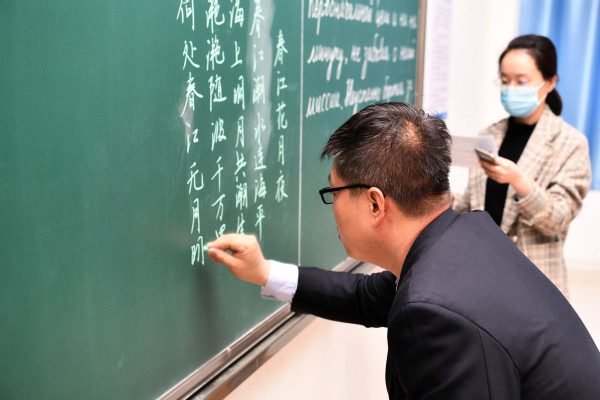 春江花月夜
春江潮水连海平
海上明月共潮生
滟滟随波千万里
何处春江无月明
цели и на
минуту, не забывая о
миссии. Неустанно